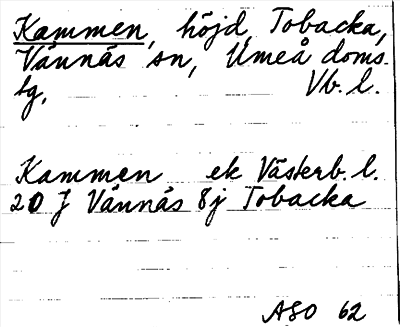 Kammen, höjd, Tobacka,
Vännäs sn, Umeå doms.
lg, Vb. l.
Kammen ek Västerb. l.
20 J Vännäs 8j Tobacka
ASO 62